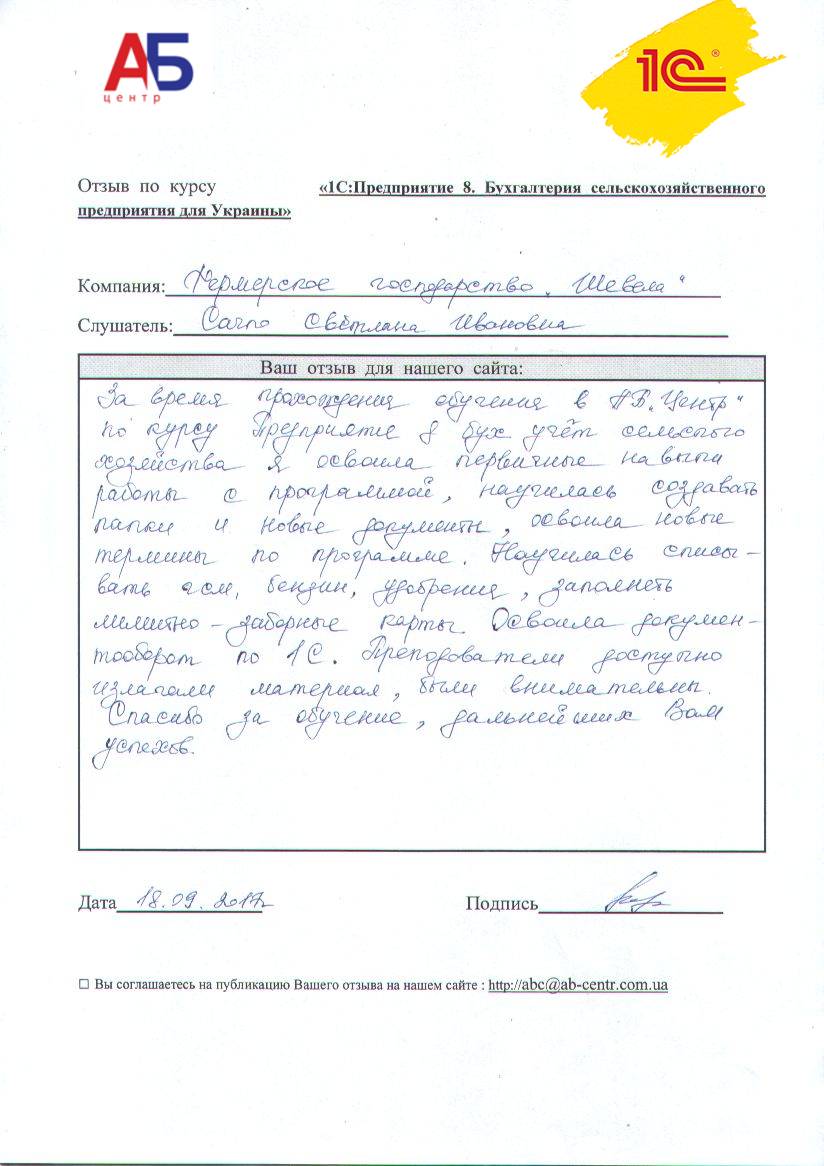 АБ
центр
1С®
Отзыв по курсу «1С:Предприятие 8. Бухгалтерия сельскохозяйственного
предприятия для Украины»
Компания: Фермерское господарство „Шевела"
Слушатель: Светлана Ивановна
Ваш отзыв для нашего сайта:
За время прохождения обучения в АБ „Центр"
по курсу Предприятие 8 бух учёт сельского
хозяйства я освоила первичные навыки
работы с программой, научилась создавать
папки и новые документы, освоила новые
термины по программе. Научилась списы-
вать гсм, бензин, удобрения, заполнеть
лимитно-заборные карты. Освоила докумен-
тооборот по 1С. Преподователи доступно
излагали материал, были внимательны.
Спасибо за обучение, дальнейших Вам
успехов.
Дата 18.09.2017г Подпись
☐ Вы соглашаетесь на публикацию Вашего отзыва на нашем сайте : http://abc@ab-centr.com.ua